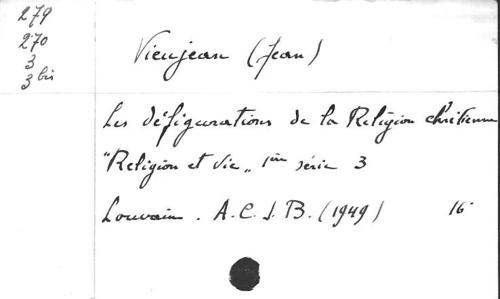 279
270
3
3 bis
Vieujean (Jean)
Les défigurations de la Religion chrétienne
"Religion et vie" 1ère série 3
Louvain. A.C.J.B. (1949) 16